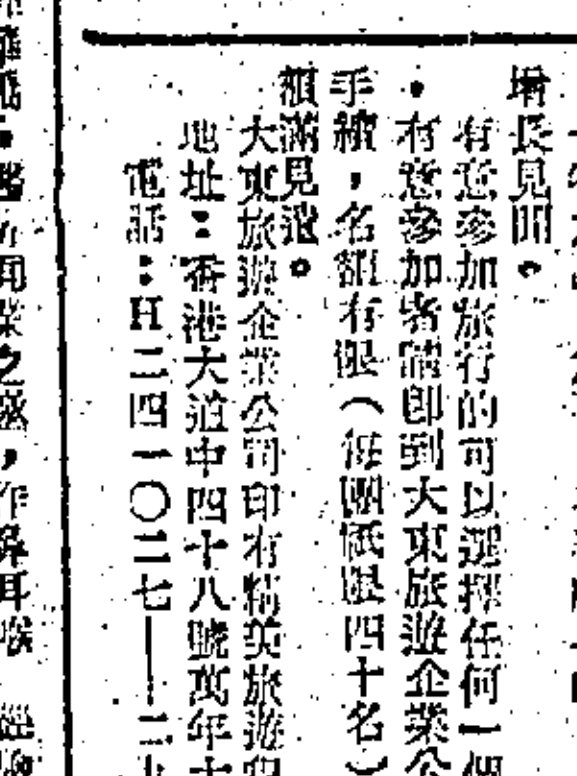 增長見聞。
有意參加旅行的可以選擇任何一個
。有意參加者請即到大東旅遊企業公
手續，名額有限（每團祇限四十名）
額滿見遺。
大東旅遊企業公司印有精美旅遊程
地址：香港大道中四十八號萬年大
電話：H二四一〇二七——二九
開業之盛，作鼻耳喉